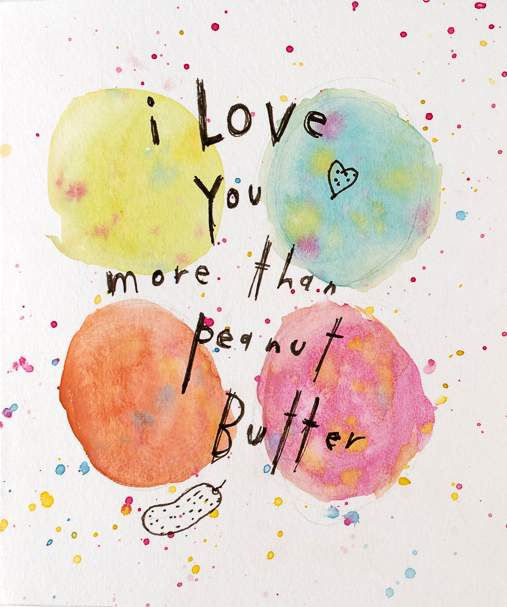 i Love
You
more than
peanut
Butter